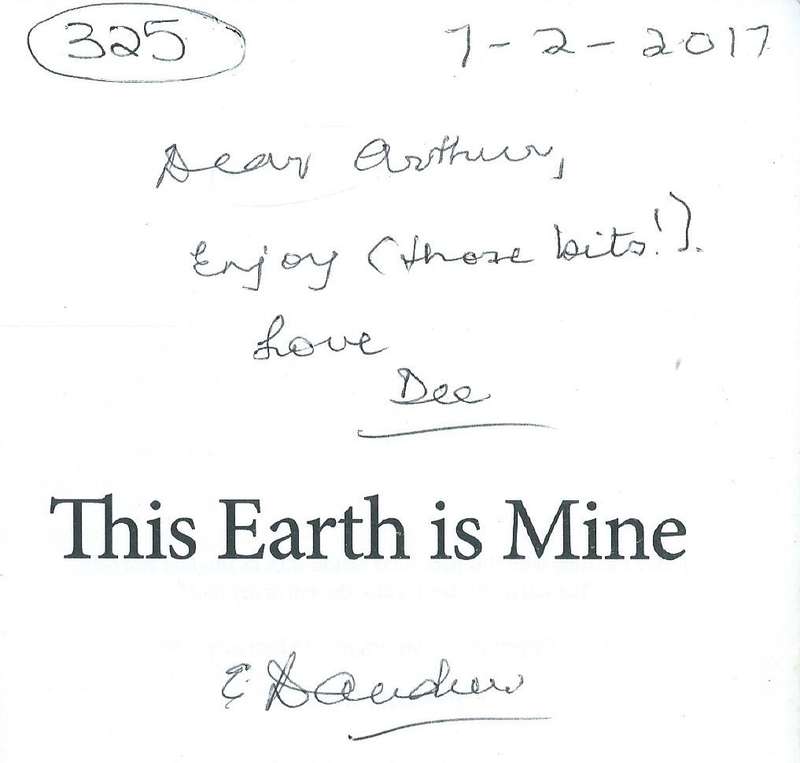 325
7-2-2017
Dear Arthur,
Enjoy (those bits!).
Love
Dee
This Earth is Mine
E